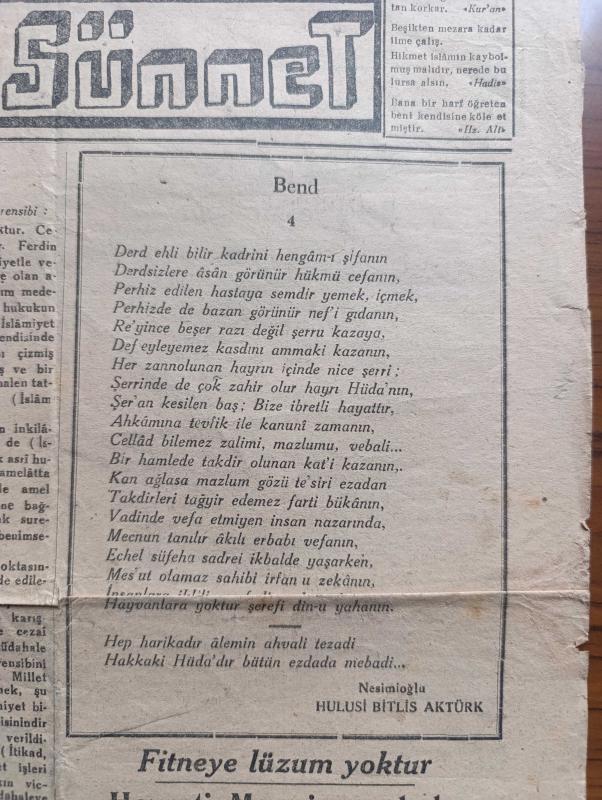 SÜnneT
tan korkar. «Kur'an»
Beşikten mezara kadar
ilme çalış.
Hikmet islâmın kaybol-
muş malıdır, nerede bu
lursa alsın. «Hadis»
Bana bir harf öğreten
beni kendisine köle et
miştir. «Hz. Ali»
rensibi :
ktur. Ce-
r. Ferdin
iyetle ve-
e olan a-
ım mede-
hukukun
İslâmiyet
endisinde
ı çizmiş
ş ve bir
halen tat-
(İslâm
n inkilâ-
de (İs-
k asrî hu-
amelâtta
le amel
ne bağ-
ak sure-
benimse-
oktasın-
de edile-
karış-
e cezai
üdahale
rensibini
Millet
mek, şu
niyet bi-
isinindir
verildi-
(İtikad,
et işleri
kın vic-
dahaleye
Bend
4
Derd ehli bilir kadrini hengâm-ı şifanın
Derdsizlere âsân görünür hükmü cefanın,
Perhiz edilen hastaya semdir yemek, içmek,
Perhizde de bazan görünür nef'i gıdanın,
Re'yince beşer razı değil şerru kazaya,
Def'eyleyemez kasdını ammaki kazanın,
Her zannolunan hayrın içinde nice şerri ;
Şerrinde de çok zahir olur hayrı Hüda'nın,
Şer'an kesilen baş ; Bize ibretli hayattır,
Ahkâmına tevfik ile kanunî zamanın,
Cellâd bilemez zalimi, mazlumu, vebali...
Bir hamlede takdir olunan kat'i kazanın,.
Kan ağlasa mazlum gözü te'siri ezadan
Takdirleri tağyir edemez farti bükânın,
Vadinde vefa etmiyen insan nazarında,
Mecnun tanılır âkılı erbabı vefanın,
Echel süfeha sadrei ikbalde yaşarken,
Mes'ut olamaz sahibi irfan u zekânın,
Hayvanlara yoktur şerefi din-u yahanın.
Hep harikadır âlemin ahvali tezadi
Hakkaki Hüda'dır bütün ezdada mebadi...
Nesimioğlu
HULUSİ BİTLİS AKTÜRK
Fitneye lüzum yoktur